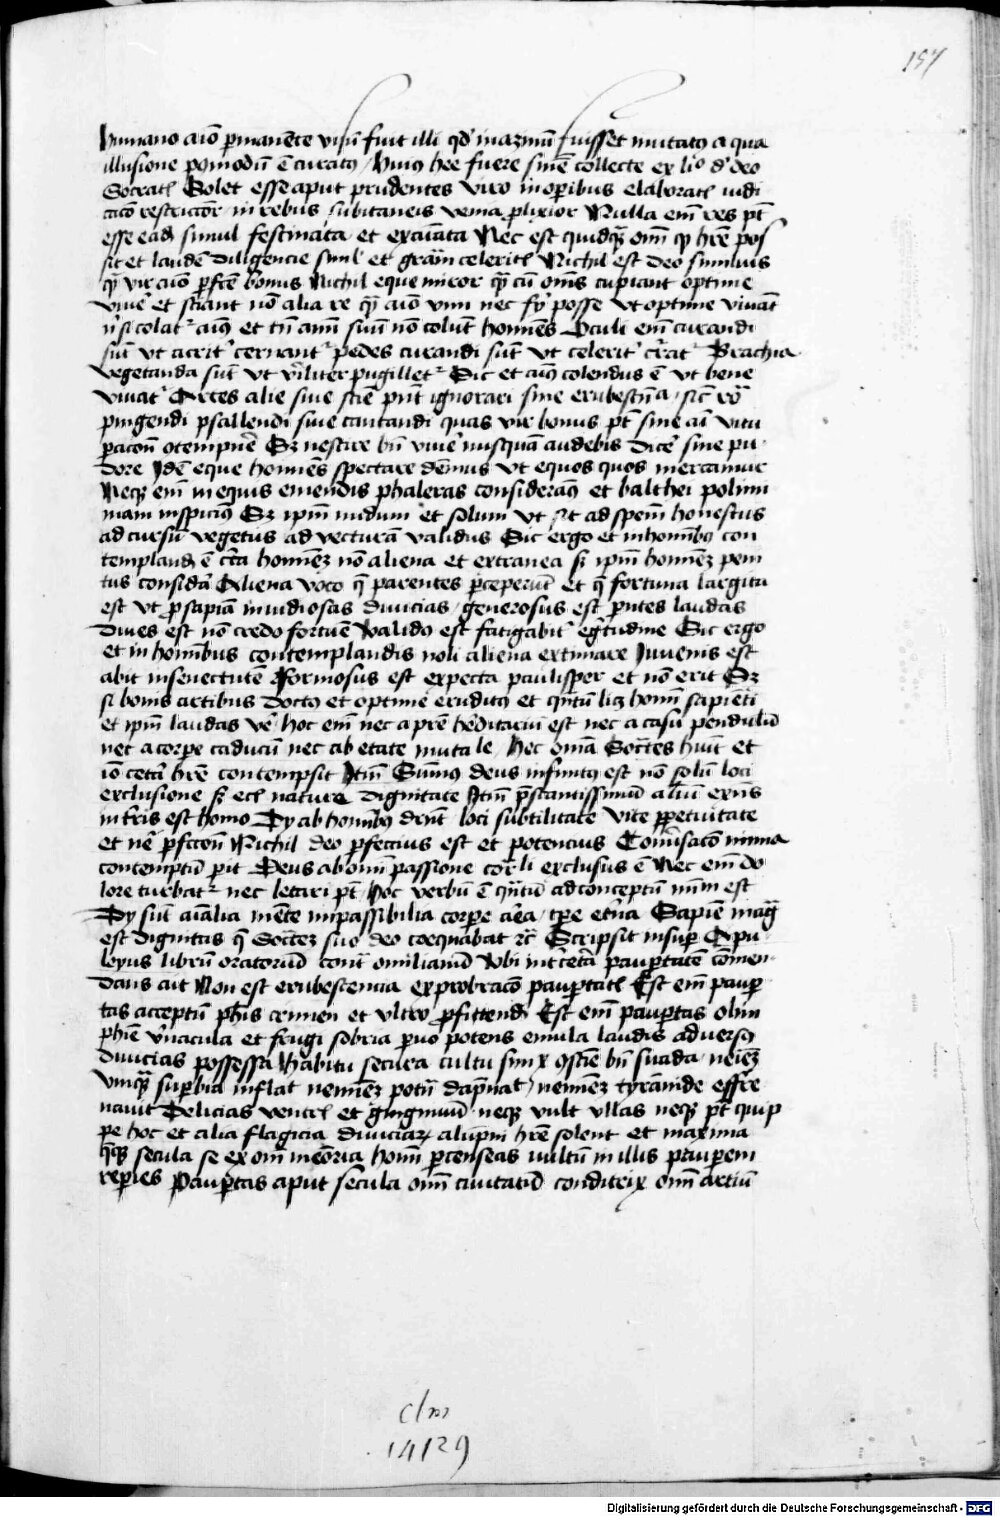 157
humano aīo ꝑmanēte visū fuit illi qd' inazinū fuisset mutatꝰ a qua
illusione pꝰmodū ē curatꝰ / huiꝰ hee fuere sniē collecte ex li° d' deo
Socratꝭ Solet esse aput prudentes viro in oꝑibus elaboratꝭ iudi
catō restrictior in rebus subitaneis venia ꝓlixior Nulla em̄ res pt̄
esse eadꝭ simul festinata et exāīata Nec est quidqꝫ om̄ qd hr̄e pos
sit et laudē diligencie siml' et grām celeritꝭ Nichil est deo similius
qꝫ vir aīo ꝑfcē bonus Nichil eque miror qꝫ cū om̄s cupiant optime
viūe' et sciant nō alia re qꝫ aīo viui nec fi' posse vt optime viuāt
n̄ si colat' aīꝰ et tn̄ aīm suū nō colūt homīes Oculi em̄ curandi
sūt vt acrit' cernant' pedes curandi sūt vt celerit' cr̄rāt Brachia
vegetanda sūt vt v'iliter pugillet' Sic et aīꝰ colendus ē vt bene
viuat' Artes alie siue sciē pn̄t ignorari sine erubesn̄a / sic̄ rō
pingendi psallendi siue cantandi quas vir bonus pt̄ sine aī vitu
ꝑacōn 9tempne' Sꝫ nescire bn̄ viūe' nusquā audebis dice' sine pu
dore Idē eque homīes spectare dēmus vt equos quos mercamur
Neqꝫ em̄ in equis emendis phaleras considerāꝰ et balthei polimi
nam inspicīꝰ Sꝫ ip̄m nudum et solum vt sit ad speīn honestus
ad cursū vegetus ad vecturā validus Sic ergo et in homībꝰ con
templandꝭ ē cīta homīeꝫ nō aliena et extranea sꝫ ip̄m homīeꝫ peni
tus considā Aliena voco q̄ parentes ꝑceperūt et q̄ fortuna largita
est vt ꝓsapiā inuidiosas diuicias / generosus est ꝑntes laudas
Diues est nō credo fortūe Validꝰ est fatigabit' eg'tudine Sic ergo
et in homībus contemplandis noli aliena extimare Iuuenis est
abit in senectutē Formosus est expecta paulisꝑ et non erit Sꝫ
si bonis artibus doctꝰ et optime eruditꝰ et qn̄tū lꝫ homī sapiēti
et ip̄m laudas ve' hoc em̄ nec a pr̄e he'ditariū est nec a casu pendulū
nec a corꝑe caducū nec ab etate mutale / hec om̄a Socrtes huit et
iō cetā hr̄e contempsit Itm̄ Sūmꝰ deus infinitꝰ est nō solū loci
exclusione sꝫ ecꝭ nature dignitate Itm̄ p̄stantissimū aīliū exn̄s
in tr̄is est homo Dy ab homībꝰ dr̄nt loci subtilitate vite ꝑpetuitate
et ne' ꝑfccōn Nichil deo ꝑfectius est et potencius Conūsacō nimia
contemptū parit Deus ab om̄i passione cordli exclusus ē Nec em̄ do
lore turbat' nec letari pt̄ / hoc verbū ē qn̄tū ad conceptū nr̄m est
Dy sūt aīalia mēte impassibilia corꝑe aē'a / tꝑe et'na Sapiē maḡ
est dignitas q̄ Socrtꝫ suo deo coequabat rc̄ Scripsit insuꝑ Apu
leyus librū oratoriū cont' omilianū vbi int' cetā pauꝑtatē cōmen
dans ait Non est erubescenda exprobracō pauꝑtatꝭ Est em̄ pauꝑ
tas acceptū ph̄is crimen et vltro ꝓfittendi Est em̄ pauꝑtas olim
ph̄ie v'nacula et frugi sobria ꝑuo potens emula laudis aduersꝰ
diuicias possessa Habitu secura cultu simꝑx 9sciē bn̄ suada / neīeꝫ
vmqꝫ suꝑbia inflat neminēꝫ potn̄ dap̄nat / nemīeꝫ tyrāide effre
nauit Delicias ventꝭ et ginginuū neqꝫ vult vllas neqꝫ pt̄ quip
pe hoc et alia flagicia diuiciaꝝ alupni hr̄e solent et maxima
qꝫqꝫ scelera se ex om̄i mēoria homī ꝑcenseas nullū in illis pauꝑem
reꝑies Pauꝑtas aput secula om̄i ciuitatū conditrix om̄i artiū
clm
14129
Digitalisierung gefördert durch die Deutsche Forschungsgemeinschaft - DFG